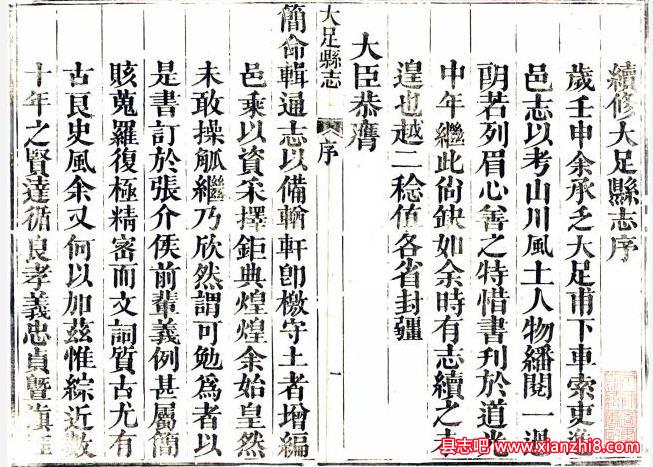 續修大足縣志序
歲壬申余承乏大足甫下車索吏進
邑志以考山川風土人物繙閱一過
朗若列眉心善之特惜書刊於道光
中年繼此尙缺如余時有志續之未
遑也越二稔值各省封疆
大臣恭膺
大足縣志
序
一
簡命輯通志以備輶軒卽檄守土者增編
邑乘以資采擇鉅典煌煌余始皇然
未敢操觚繼乃欣然謂可勉爲者以
是書訂於張介侯前輩義例甚屬簡
賅蒐羅復極精密而文詞質古尤有
古良史風余又何以加茲惟綜近數
十年之賢達循良孝義忠貞曁
县志吧 www.xianzhi8.com